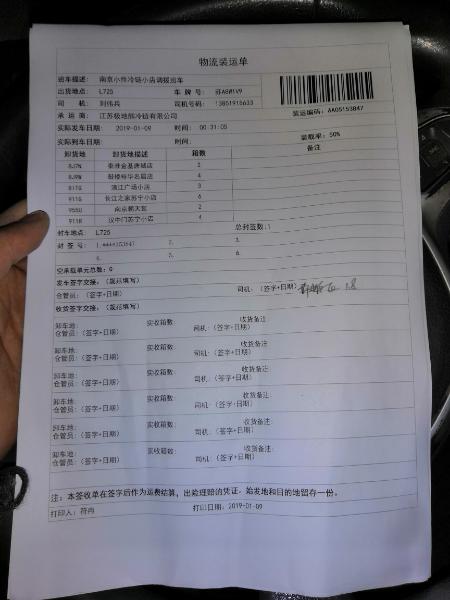 物流装运单
班车描述: 南京小件冷链小店调拨班车
出货地点: L725 车 牌 号:
司 机: 刘伟兵 司机号码: 13851915633
承 运 商: 江苏极地熊冷链有限公司 装运编码: AA05153847
实际发车日期: 2019-01-09 时间: 00:31:05
实际到车日期: 时间: 装载率: 50%
卸货地 卸货地描述 箱数 备注
8J7N
8J9N 4
811G 浦江广场小店 3
911G 长江之家苏宁小店 6
955U 南京朝天宫 2
911R 汉中门苏宁小店 4
封车地点: L725 总封签数:1
封 签 号: 1. 2. 3.
4. 5. 6.
空承载单元总数: 0
发车签字交接: (强花填写)
仓管员: (签字+日期) 司机: (签字+日期) 1.8
收货签字交接: (强花填写)
卸车地: 实收箱数: 收货备注:
仓管员: (签字+日期) 司机: (签字+日期)
卸车地: 实收箱数: 收货备注:
仓管员: (签字+日期) 司机: (签字+日期)
卸车地: 实收箱数: 收货备注:
仓管员: (签字+日期) 司机: (签字+日期)
卸车地: 实收箱数: 收货备注:
仓管员: (签字+日期) 司机: (签字+日期)
卸车地: 实收箱数: 收货备注:
仓管员: (签字+日期) 司机: (签字+日期)
卸车地: 实收箱数: 收货备注:
仓管员: (签字+日期) 司机: (签字+日期)
注: 本签收单在签字后作为运费结算, 出险理赔的凭证, 始发地和目的地留存一份。
打印人: 符冉 打印日期: 2019-01-09